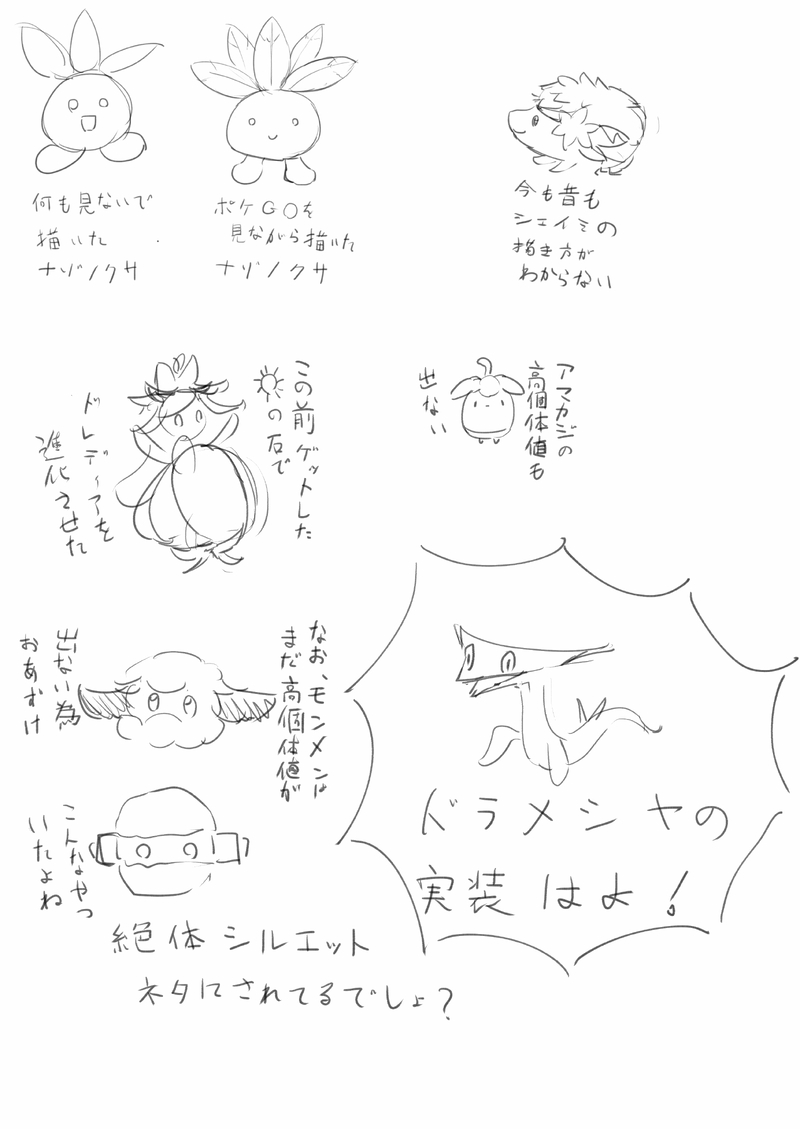 何も見ないで
描いた
ナゾノクサ
ポケGOを
見ながら描いた
ナゾノクサ
今も昔も
シェイミの
描き方が
わからない
この前ゲットした
の石で
ドレディアを
進化させた
アマカジの
高個体値も
出ない
なお、モンメンは
まだ高個体値が
出ない為
おあずけ
こんなやつ
いたよね
絶体シルエット
ネタにされてるでしょ?
ドラメシヤの
実装はよ!